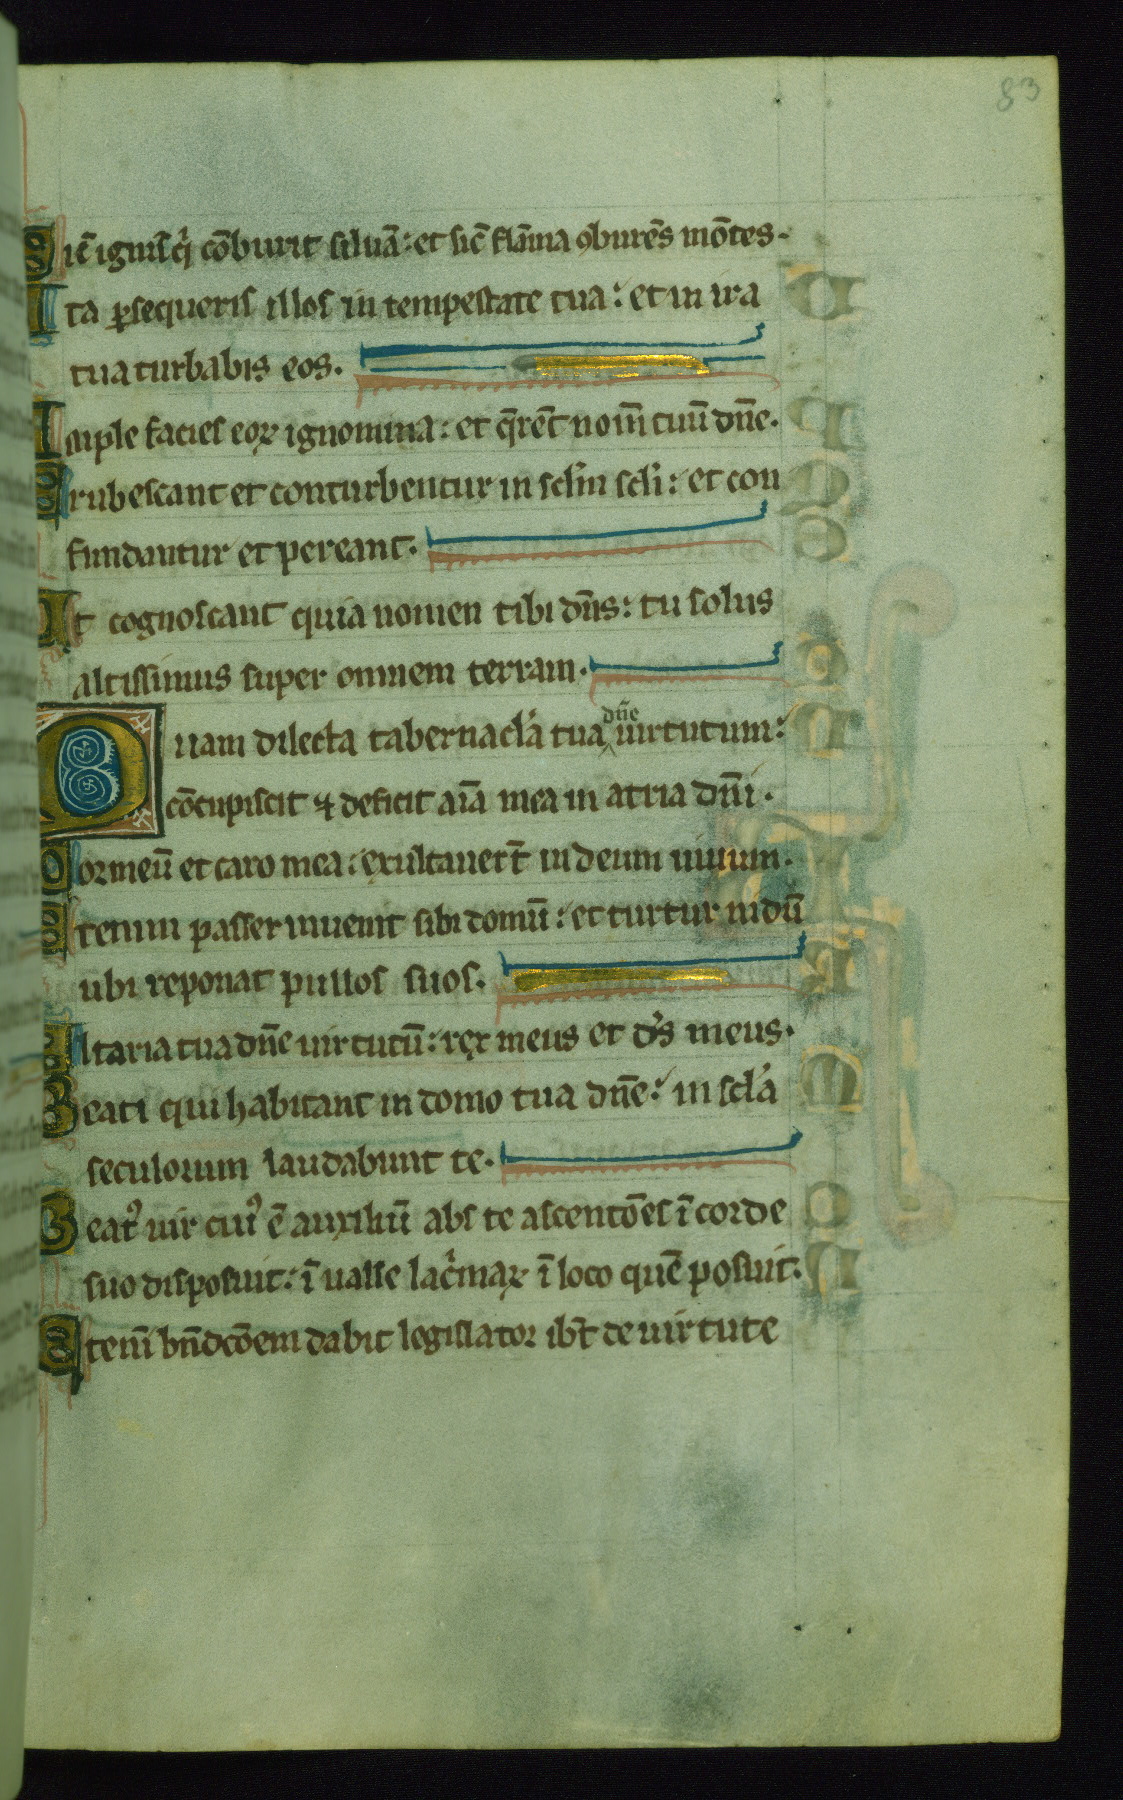 83
Sic̄ ignis q̄ cōburit siluā: et sic̄ flāma ꝯburēs mōtes.
Ita ꝑsequeris illos in tempestate tua: et in ira
tua turbabis eos.
Imple facies eoꝝ ignominia: et q̄rēt nom̄ tuū dn̄e.
Erubescant et conturbentur in scl̄m scl̄i: et con
fundantur et pereant.
Ut cognoscant quia nomen tibi dn̄s: tu solus
altissimus super omnem terram.
Quam dilecta tabernacl̄a tua dn̄e uirtutum:
cōcupiscit ⁊ deficit aīa mea in atria dn̄i.
Cor meū et caro mea: exultauer̄t in deum uiuum.
Etenim passer inuenit sibi domū: et turtur nidū
ubi reponat pullos suos.
Altaria tua dn̄e uirtutū: rex meus et ds̄ meus.
Beati qui habitant in domo tua dn̄e: in scl̄a
seculorum laudabunt te.
Beatꝰ uir cuiꝰ ē auxiliū abs te ascentōes ī corde
suo disposuit: ī ualle lac̄maꝝ ī loco quē posuit.
Etenī bn̄dcōem dabit legislator ibt̄ de uirtute